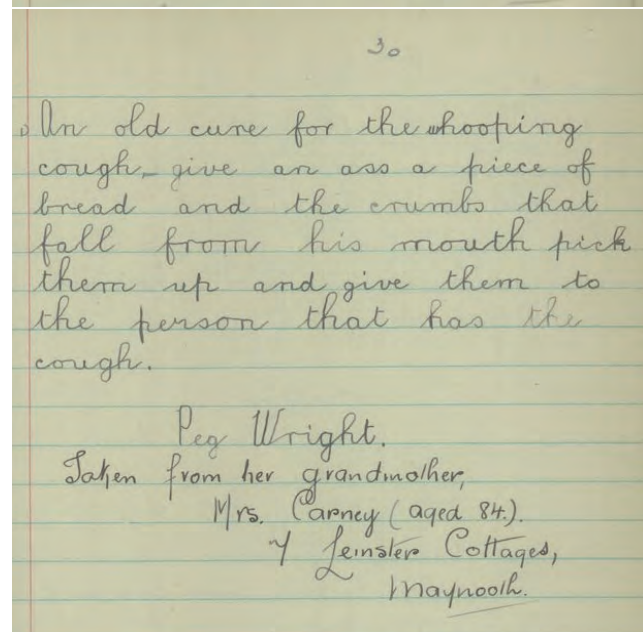 30
An old cure for the whooping
cough, give an ass a piece of
bread and the crumbs that
fall from his mouth pick
them up and give them to
the person that has the
cough.
Peg Wright.
Taken from her grandmother,
Mrs. Carney (aged 84).
7 Leinster Cottages,
Maynooth.